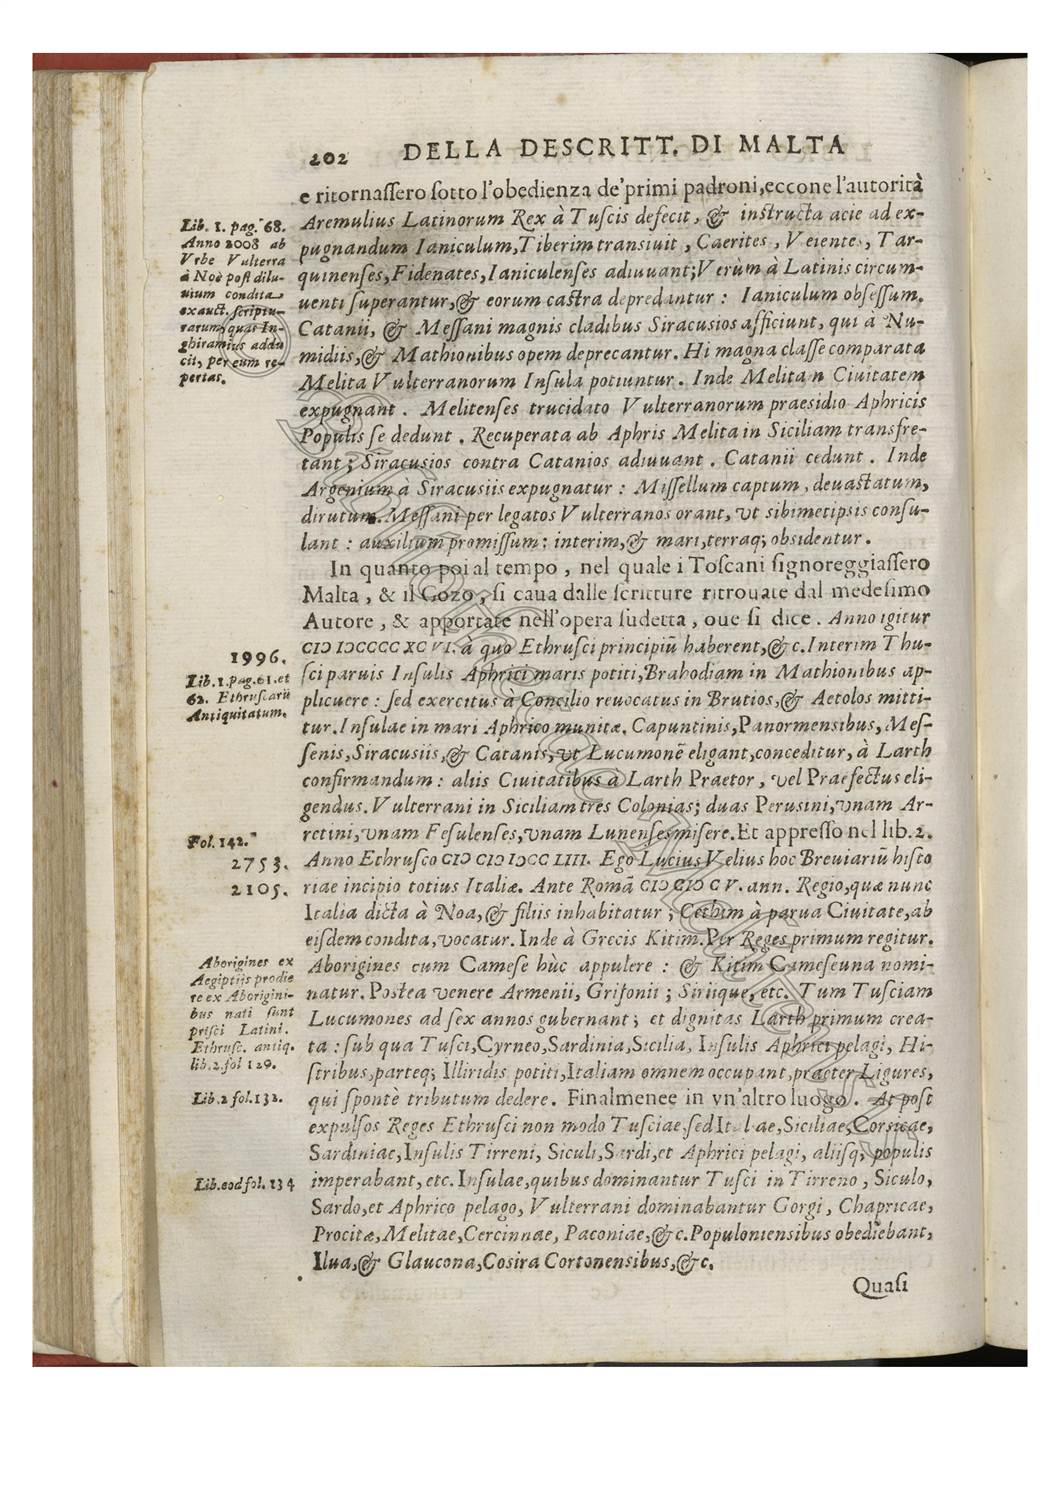 202 DELLA DESCRITT. DI MALTA
e ritornaſſero ſotto l'obedienza de' primi padroni, eccone l'autorità
Aremulius Latinorum Rex à Tuſcis defecit, & inſtructa acie ad ex-
pugnandum Ianiculum, Tiberim transiuit, Caerites, Veientes, Tar-
quinenſes, Fidenates, Ianiculenſes adiuuant; Verùm à Latinis circum-
uenti ſuperantur, & eorum caſtra depredantur: Ianiculum obſeſſum.
Catanii, & Meſſani magnis cladibus Siracusios afficiunt, qui à Nu-
midiis, & Mathionibus opem deprecantur. Hi magna claſſe comparata
Melita Vulterranorum Inſula potiuntur. Inde Melitam Ciuitatem
expugnant. Melitenſes trucidato Vulterranorum praesidio Aphricis
Populis ſe dedunt. Recuperata ab Aphris Melita in Siciliam transfre-
tant; Siracusios contra Catanios adiuuant. Catanii cedunt. Inde
Argenium à Siracusiis expugnatur: Miſſellum captum, deuaſtatum,
dirutum. Meſſani per legatos Vulterranos orant, vt sibimetipsis conſu-
lant: auxilium promiſſum: interim, & mari, terraq; obsidentur.
In quanto poi al tempo, nel quale i Toſcani ſignoreggiaſſero
Malta, & il Gozo, ſi caua dalle ſcritture ritrouate dal medeſimo
Autore, & apportate nell'opera ſudetta, oue ſi dice. Anno igitur
CIↃ IↃCCCC XCVI. à quo Ethruſci principiũ haberent, & c. Interim Thu-
ſci paruis Inſulis Aphrici maris potiti, Brahodiam in Mathionibus ap-
plicuere: ſed exercitus à Concilio reuocatus in Brutios, & Aetolos mitti-
tur. Inſulae in mari Aphrico munitæ. Capuntinis, Panormensibus, Meſ-
ſenis, Siracusiis, & Catanis, vt Lucumonẽ eligant, conceditur, à Larth
confirmandum: aliis Ciuitatibus à Larth Praetor, vel Praefectus eli-
gendus. Vulterrani in Siciliam tres Colonias; duas Perusini, vnam Ar-
retini, vnam Feſulenſes, vnam Lunenſes misere. Et appreſſo nel lib. 2.
Anno Ethruſco CIↃ CIↃ IↃCC LIII. Ego Lucius Velius hoc Breuiariũ hiſto
riae incipio totius Italiæ. Ante Romã CIↃ CIↃ C V. ann. Regio, quæ nunc
Italia dicta à Noa, & filiis inhabitatur; Cethim à parua Ciuitate, ab
eiſdem condita, vocatur. Inde à Grecis Kitim. Per Reges primum regitur.
Aborigines cum Cameſe hùc appulere: & Kitim Cameſeuna nomi-
natur. Poſtea venere Armenii, Griſonii; Siriique, etc. Tum Tuſciam
Lucumones ad ſex annos gubernant; et dignitas Larth primum crea-
ta: ſub qua Tuſci, Cyrneo, Sardinia, Sicilia, Inſulis Aphrici pelagi, Hi-
ſtribus, parteq; Illiridis potiti, Italiam omnem occupant, praeter Ligures,
qui ſpontè tributum dedere. Finalmenee in vn'altro luogo. At poſt
expulſos Reges Ethruſci non modo Tuſciae, ſed Italiae, Siciliae, Corsicae,
Sardiniae, Inſulis Tirreni, Siculi, Sardi, et Aphrici pelagi, aliiſq; populis
imperabant, etc. Inſulae, quibus dominantur Tuſci in Tirreno, Siculo,
Sardo, et Aphrico pelago, Vulterrani dominabantur Gorgi, Chapricae,
Procitæ, Melitae, Cercinnae, Paconiae, & c. Populoniensibus obediebant,
Ilua, & Glaucona, Cosira Cortonensibus, & c.
Quaſi
Lib. 1. pag. 68.
Anno 2008 ab
Vrbe Vulterra
à Noè poſt dilu-
uium condita
ex auct. ſcriptu-
rarum, quas In-
ghiramius addu
cit, per eum re-
pertas.
1996.
Lib. 1. pag. 61. et
62. Ethruſcarũ
Antiquitatum.
Fol. 142.
2753.
2105.
Aborigines ex
Aegiptiis prodie
re ex Aborigini-
bus nati ſunt
priſci Latini.
Ethruſc. antiq.
lib. 2. fol 129.
Lib. 2 fol. 132.
Lib. eod fol. 134